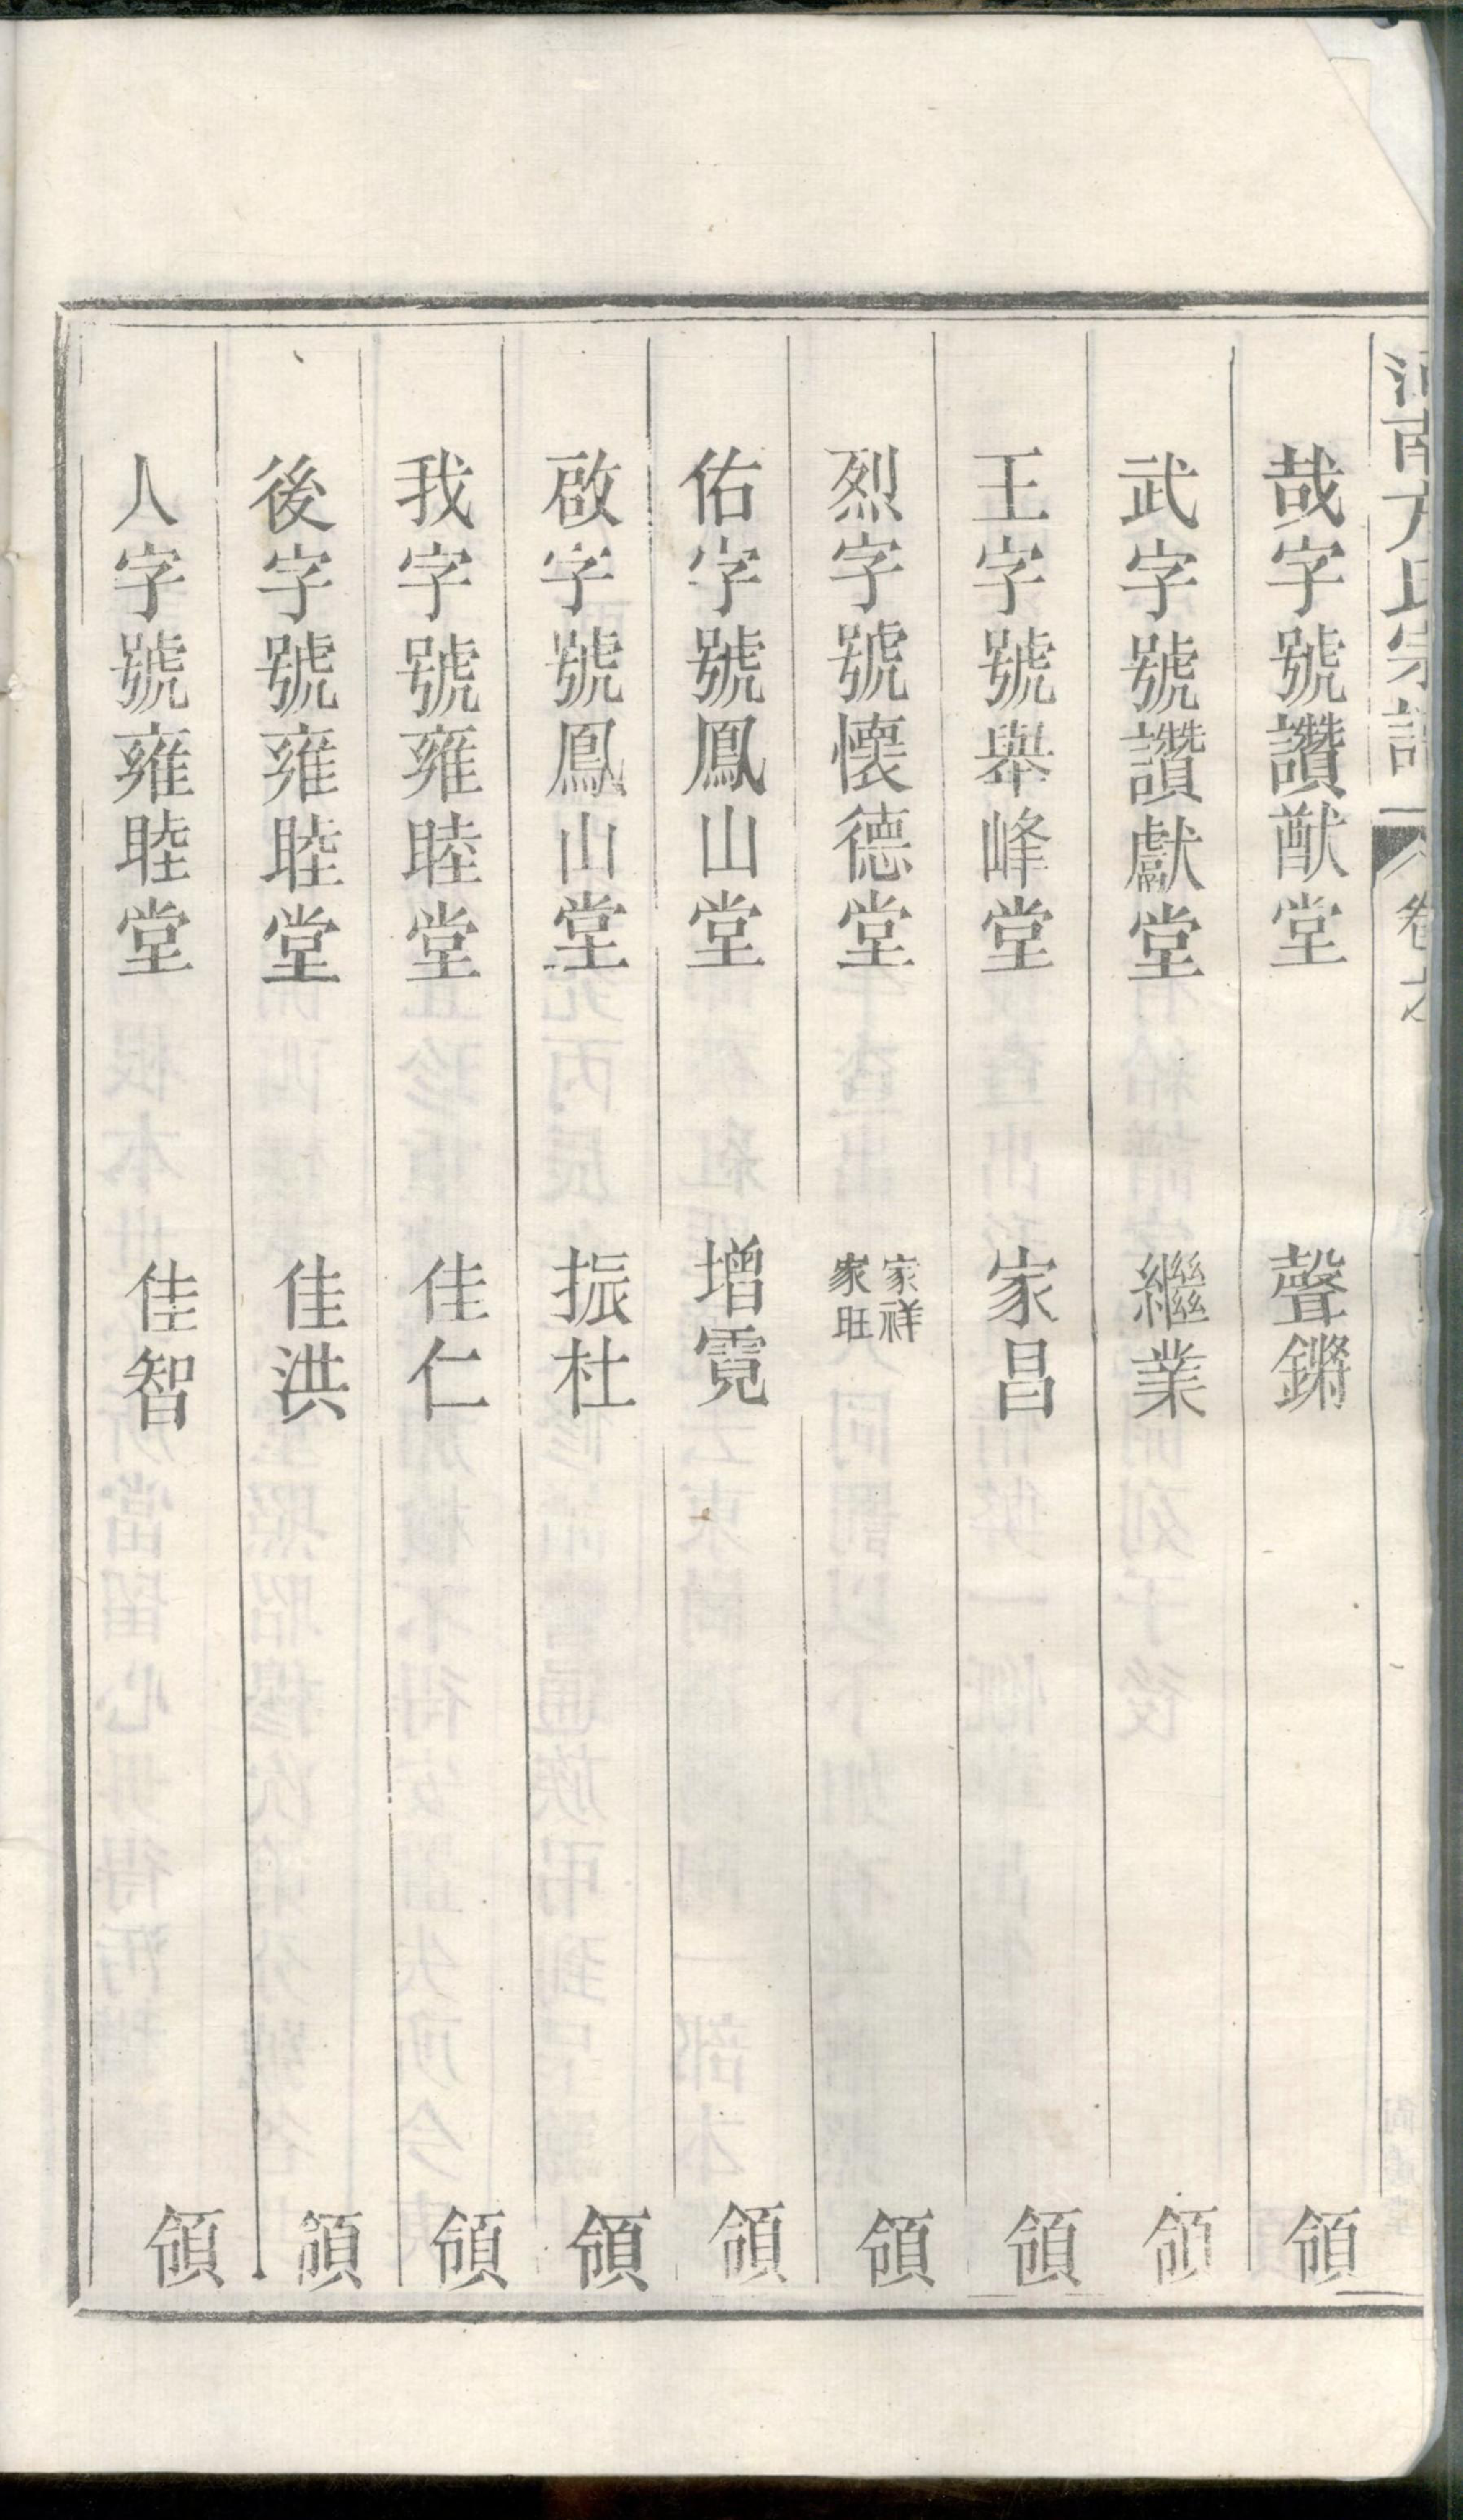 河南方氏宗譜 卷之
哉字號讚猷堂 聲鏘 領
武字號讚獻堂 繼業 領
王字號舉峰堂 家昌 領
烈字號懷德堂 家祥 家旺 領
佑字號鳳山堂 增霓 領
啟字號鳳山堂 振杜 領
我字號雍睦堂 佳仁 領
後字號雍睦堂 佳洪 領
人字號雍睦堂 佳智 領